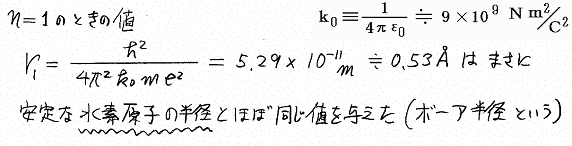 n=1 のときの値
k₀ ≡ 1/(4πε₀) ≒ 9×10⁹ N m²/C²
r₁ = ℏ²/(4π² k₀ m e²) = 5.29 × 10⁻¹¹ m ≒ 0.53 Å は まさに
安定な 水素原子の半径とほぼ同じ値を与えた (ボーア半径という)